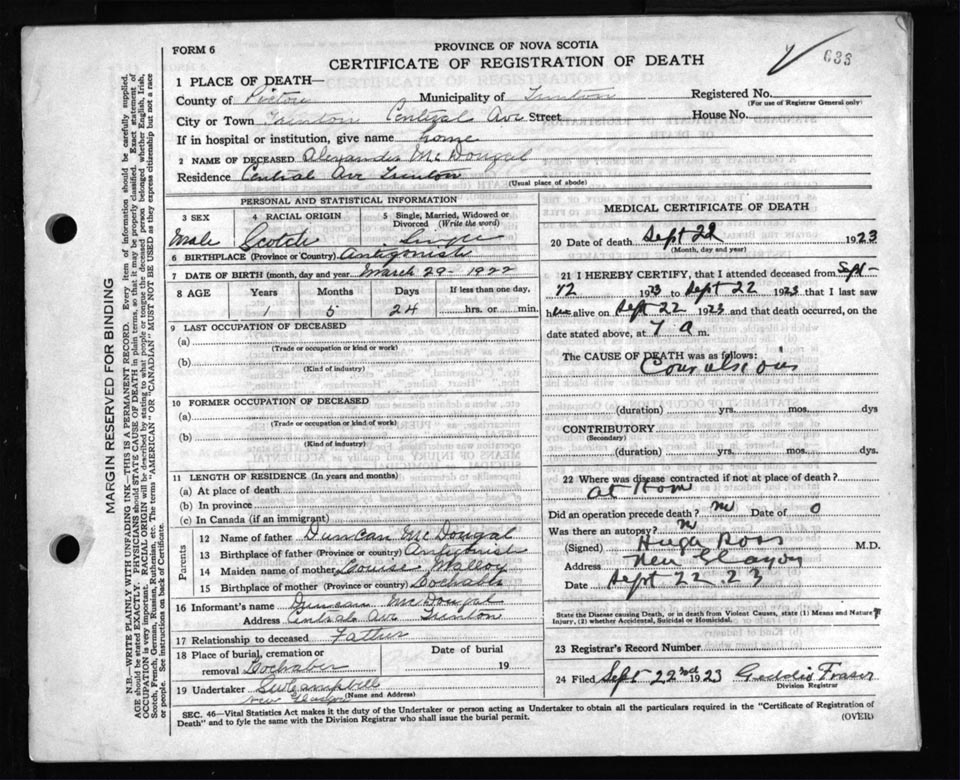 FORM 6
PROVINCE OF NOVA SCOTIA
CERTIFICATE OF REGISTRATION OF DEATH
633
1 PLACE OF DEATH—
County of Pictou Municipality of Trenton Registered No.
(For use of Registrar General only)
City or Town Trenton Central Ave Street House No.
If in hospital or institution, give name home
2 NAME OF DECEASED Alexander McDougal
Residence Central Ave Trenton
(Usual place of abode)
PERSONAL AND STATISTICAL INFORMATION
3 SEX 4 RACIAL ORIGIN 5 Single, Married, Widowed or Divorced (Write the word)
Male Scotch Single
6 BIRTHPLACE (Province or Country) Antigonish
7 DATE OF BIRTH (month, day and year March 29 - 1922
8 AGE Years Months Days If less than one day,
1 5 24 hrs. or min.
9 LAST OCCUPATION OF DECEASED
(a)
(Trade or occupation or kind or work)
(b)
(Kind of industry)
10 FORMER OCCUPATION OF DECEASED
(a)
(Trade or occupation or kind of work)
(b)
(Kind of industry)
11 LENGTH OF RESIDENCE (In years and months)
(a) At place of death
(b) In province
(c) In Canada (if an immigrant)
Parents
12 Name of father Duncan McDougal
13 Birthplace of father (Province or country) Antigonish
14 Maiden name of mother Louise Malloy
15 Birthplace of mother (Province or country) Lochaber
16 Informant's name Duncan McDougal
Address Central Ave Trenton
17 Relationship to deceased Father
18 Place of burial, cremation or removal Lochaber Date of burial 19
19 Undertaker Campbell
New Glasgow (Name and Address)
MEDICAL CERTIFICATE OF DEATH
20 Date of death Sept 22 1923
(Month, day and year)
21 I HEREBY CERTIFY, that I attended deceased from Spt-
12 1923 to Sept 22 1923 that I last saw
him alive on Sept 22 1923 and that death occurred, on the
date stated above, at 7 a m.
The CAUSE OF DEATH was as follows:
Convulsions
(duration) yrs. mos. dys
CONTRIBUTORY
(Secondary)
(duration) yrs. mos. dys.
22 Where was disease contracted if not at place of death?
at Hom
Did an operation precede death? no Date of 0
Was there an autopsy? n
(Signed) Hugh Ross M.D.
Address New Glasgow
Date Sept 22. 23
State the Disease causing Death, or in death from Violent Causes, state (1) Means and Nature of
Injury, (2) whether Accidental, Suicidal or Homicidal.
23 Registrar's Record Number
24 Filed Sept 22nd 1923 Geddie Fraser
Division Registrar
SEC. 46—Vital Statistics Act makes it the duty of the Undertaker or person acting as Undertaker to obtain all the particulars required in the "Certificate of Registration of
Death" and to fyle the same with the Division Registrar who shall issue the burial permit. (OVER)
MARGIN RESERVED FOR BINDING
N.B.—WRITE PLAINLY WITH UNFADING INK—THIS IS A PERMANENT RECORD. Every item of information should be carefully supplied.
AGE should be stated EXACTLY. PHYSICIANS should STATE CAUSE OF DEATH in plain terms, so that it may be properly classified. Exact statement of
OCCUPATION is very important. RACIAL ORIGIN will be described by stating to what people or tongue the deceased person belonged whether English, Irish,
Scotch, French, German, Russian, Ruthenian, etc. The terms "AMERICAN" OR "CANADIAN" MUST NOT BE USED as they express citizenship but not a race
or people. See instructions on back of Certificate.